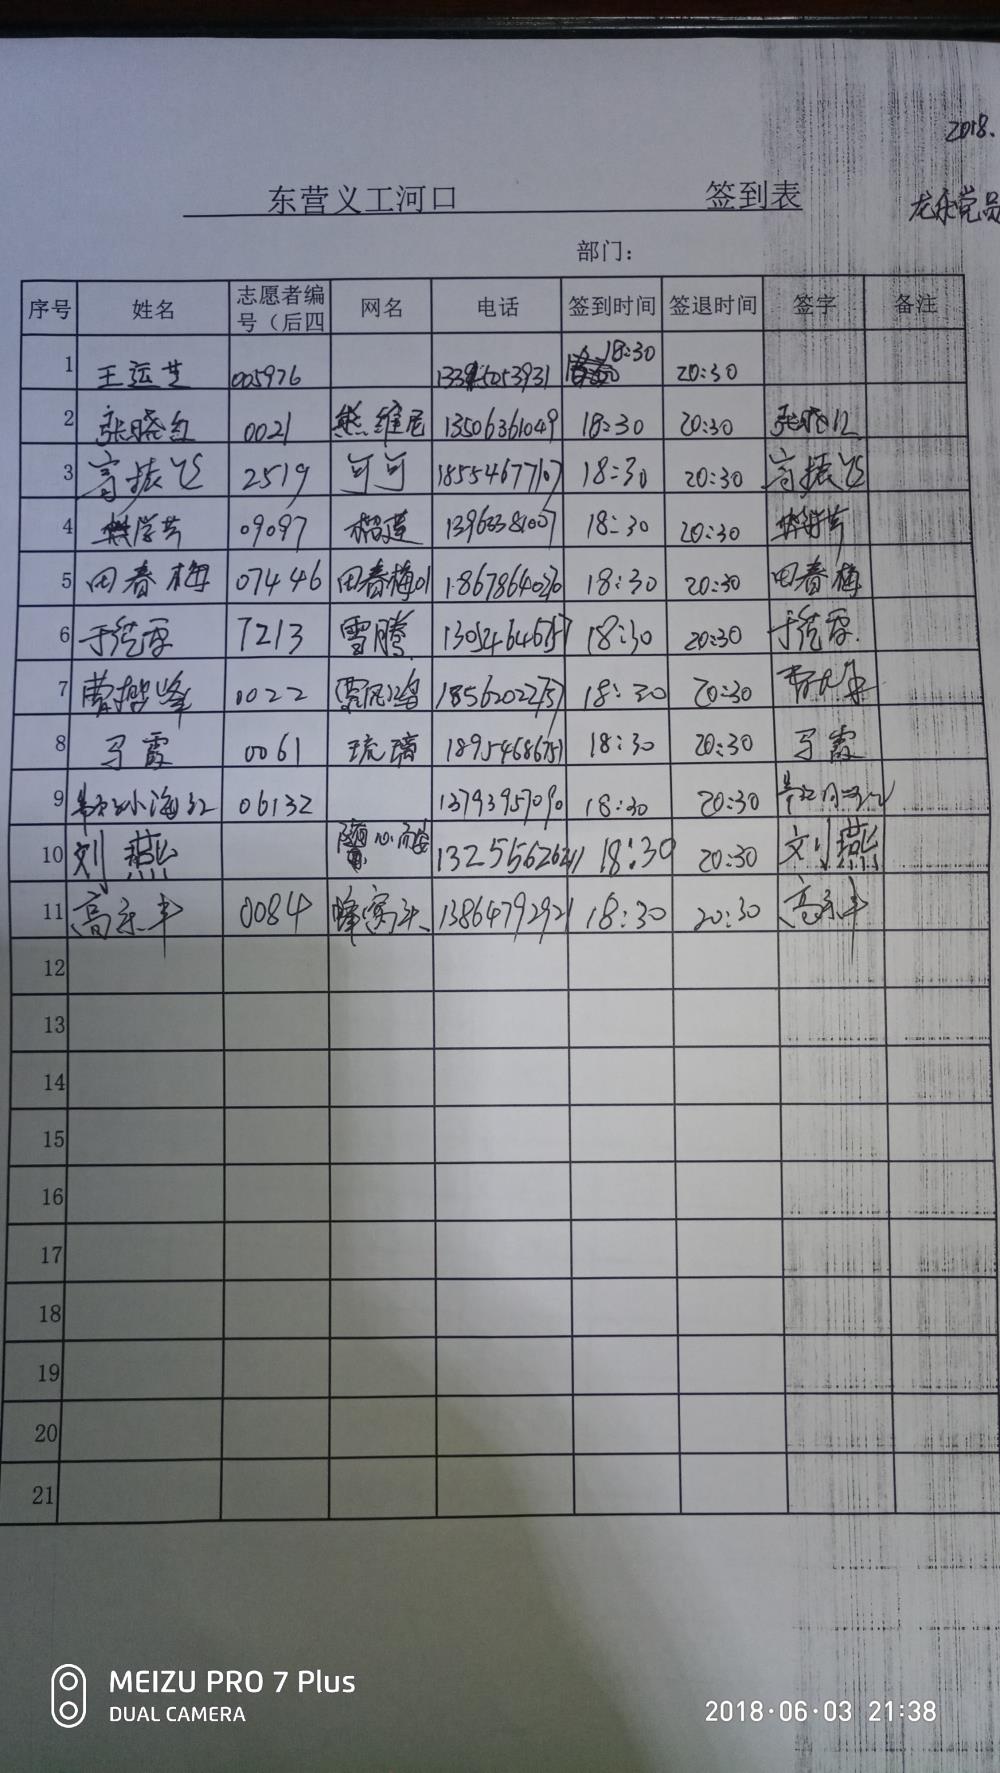 2018.
东营义工河口 签到表
龙乐党员
部门：
序号 姓名 志愿者编号（后四 网名 电话 签到时间 签退时间 签字 备注
1 王运芝 005976 18:30 20:30
2 张晓红 0021 熊维尼 13506361049 18:30 20:30 张晓红
3 高振飞 2519 可可 18554677107 18:30 20:30 高振飞
4 09097 18:30 20:30
5 田春梅 07446 田春梅01 18678640270 18:30 20:30 田春梅
6 7213 雪腾 18:30 20:30
7 0022 18:30 20:30
8 马霞 0061 琉璃 18954686751 18:30 20:30 马霞
9 06132 13793957090 18:30 20:30
10 刘燕 随心而安 13255562621 18:30 20:30 刘燕
11 高东丰 0084 蜂窝头 13864792921 18:30 20:30 高东丰
12
13
14
15
16
17
18
19
20
21
MEIZU PRO 7 Plus
DUAL CAMERA
2018·06·03 21:38